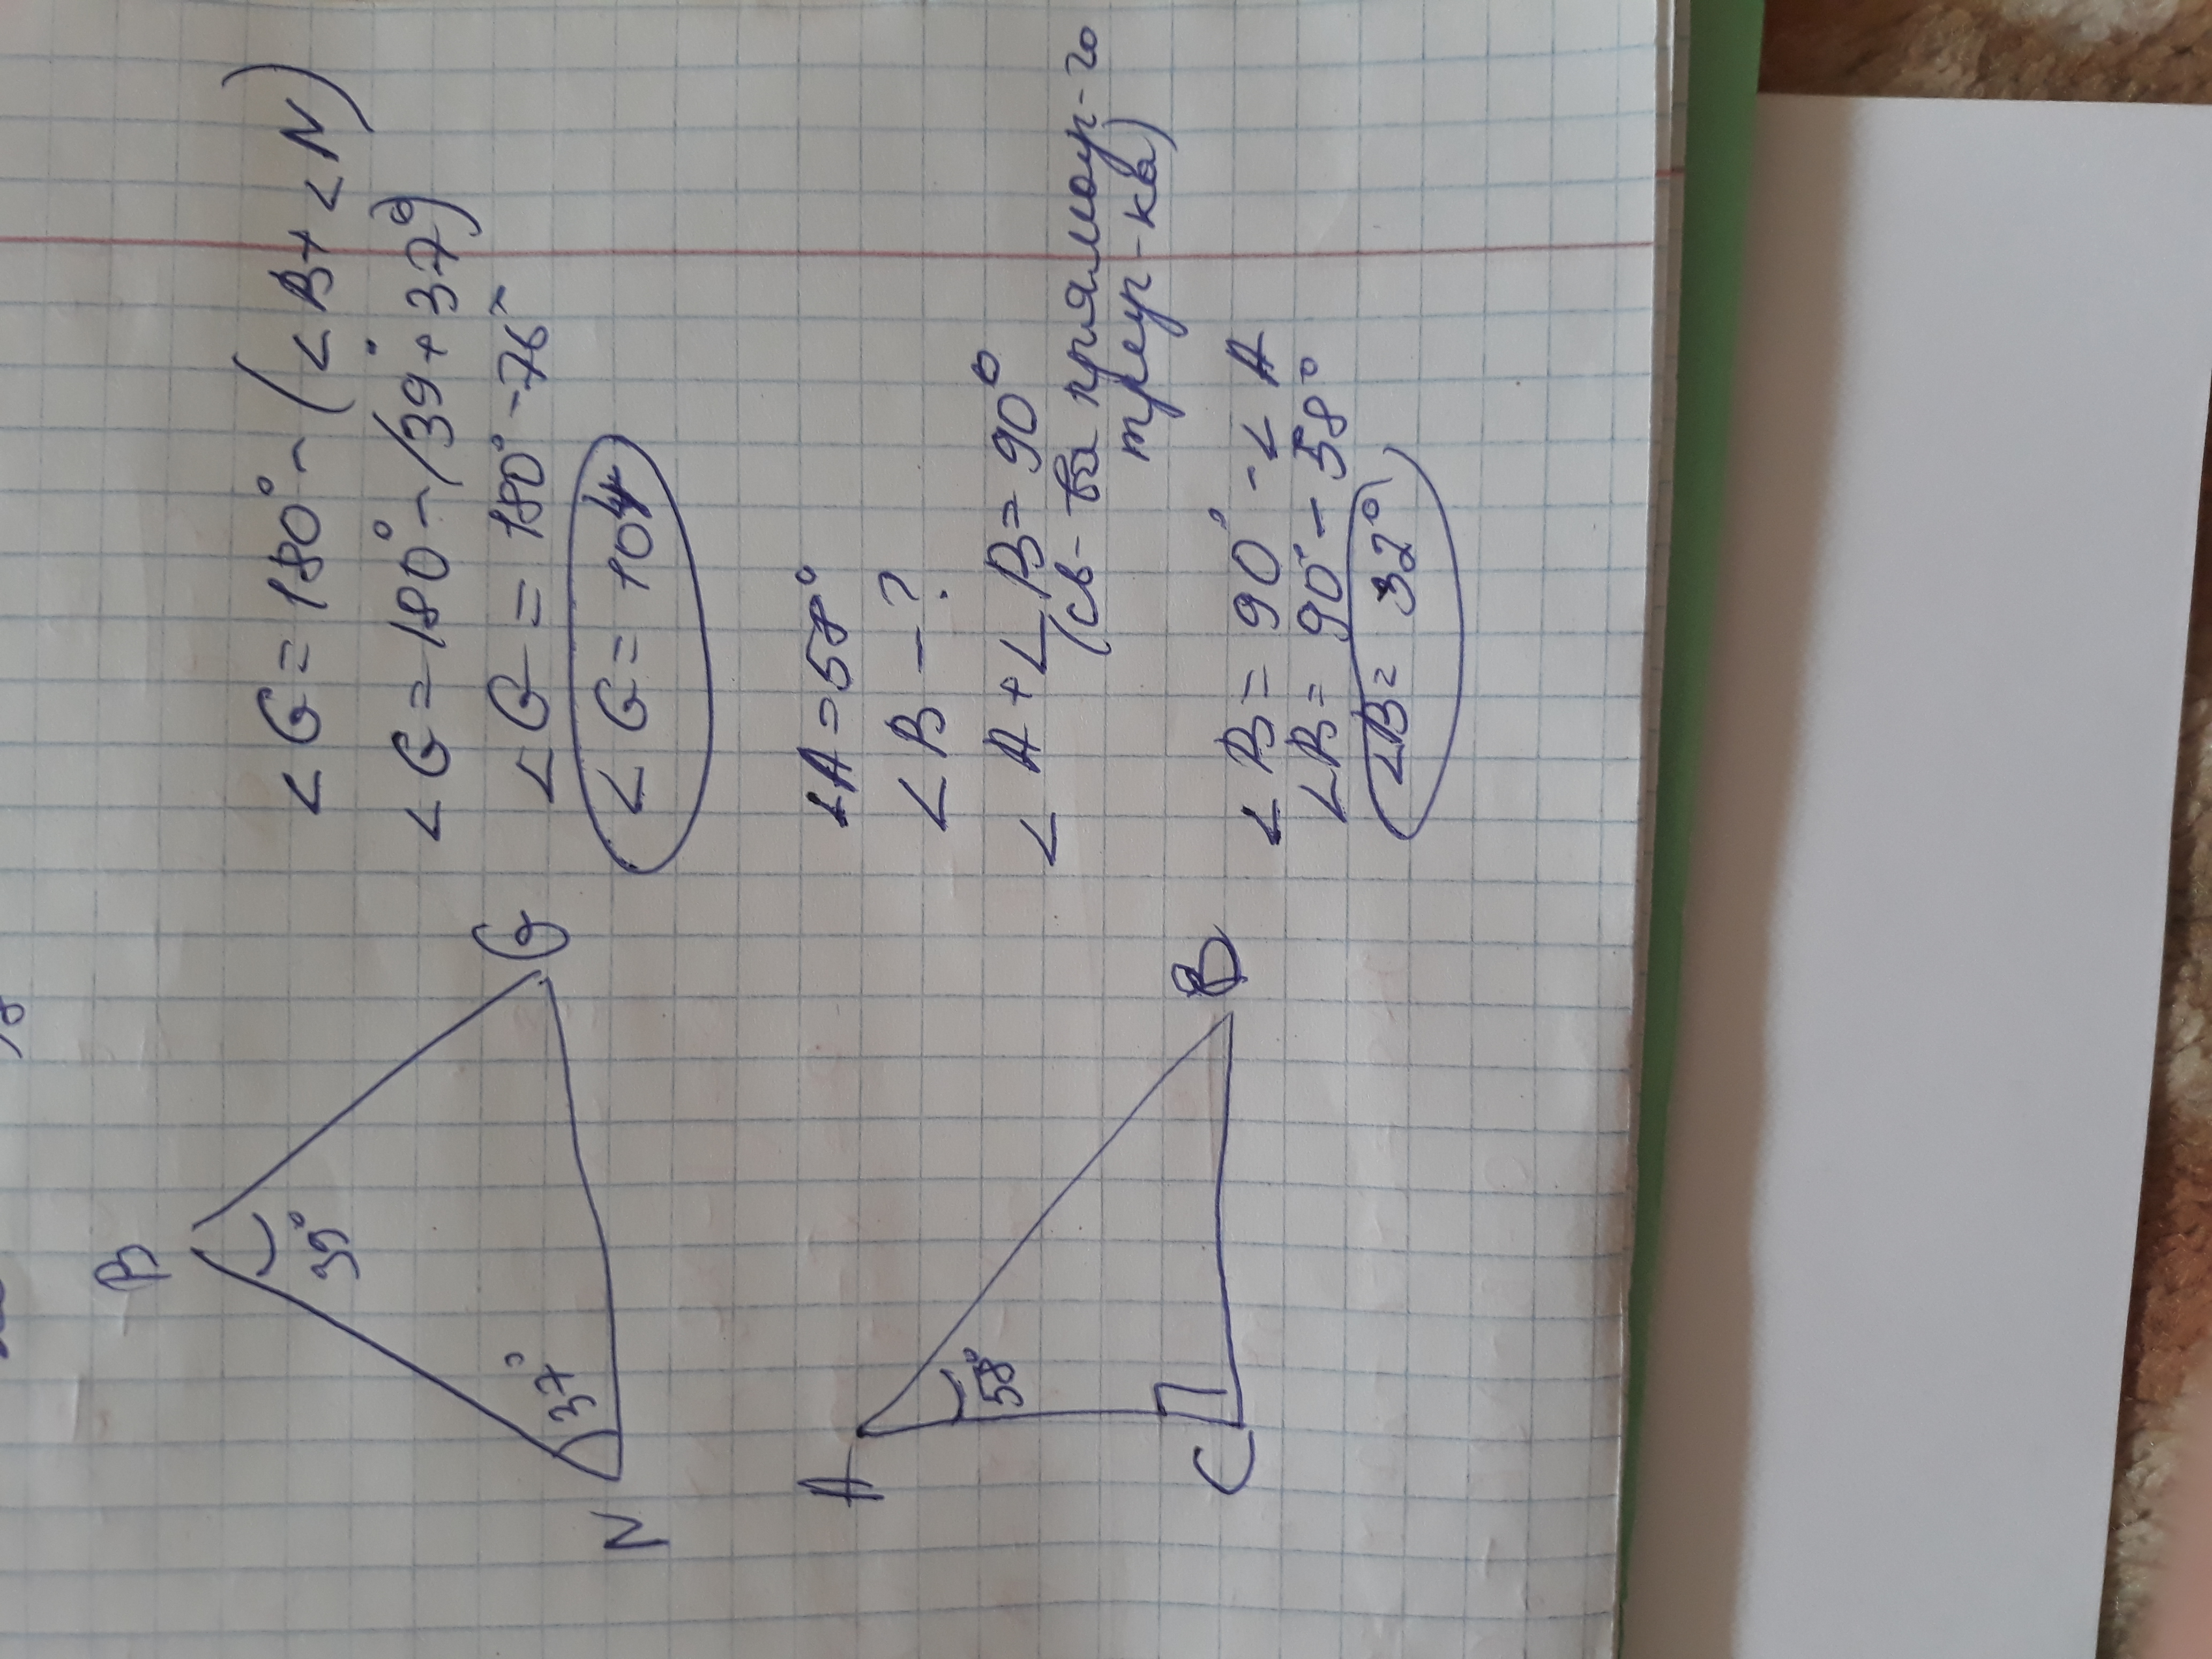 B
39°
37°
N
G
∠G = 180° - (∠B + ∠N)
∠G = 180° - (39° + 37°)
∠G = 180° - 76°
∠G = 104
A
58°
C
B
∠A = 58°
∠B - ?
∠A + ∠B = 90°
(св-ва прямоуг-го
треуг-ка)
∠B = 90° - ∠A
∠B = 90° - 58°
∠B = 32°